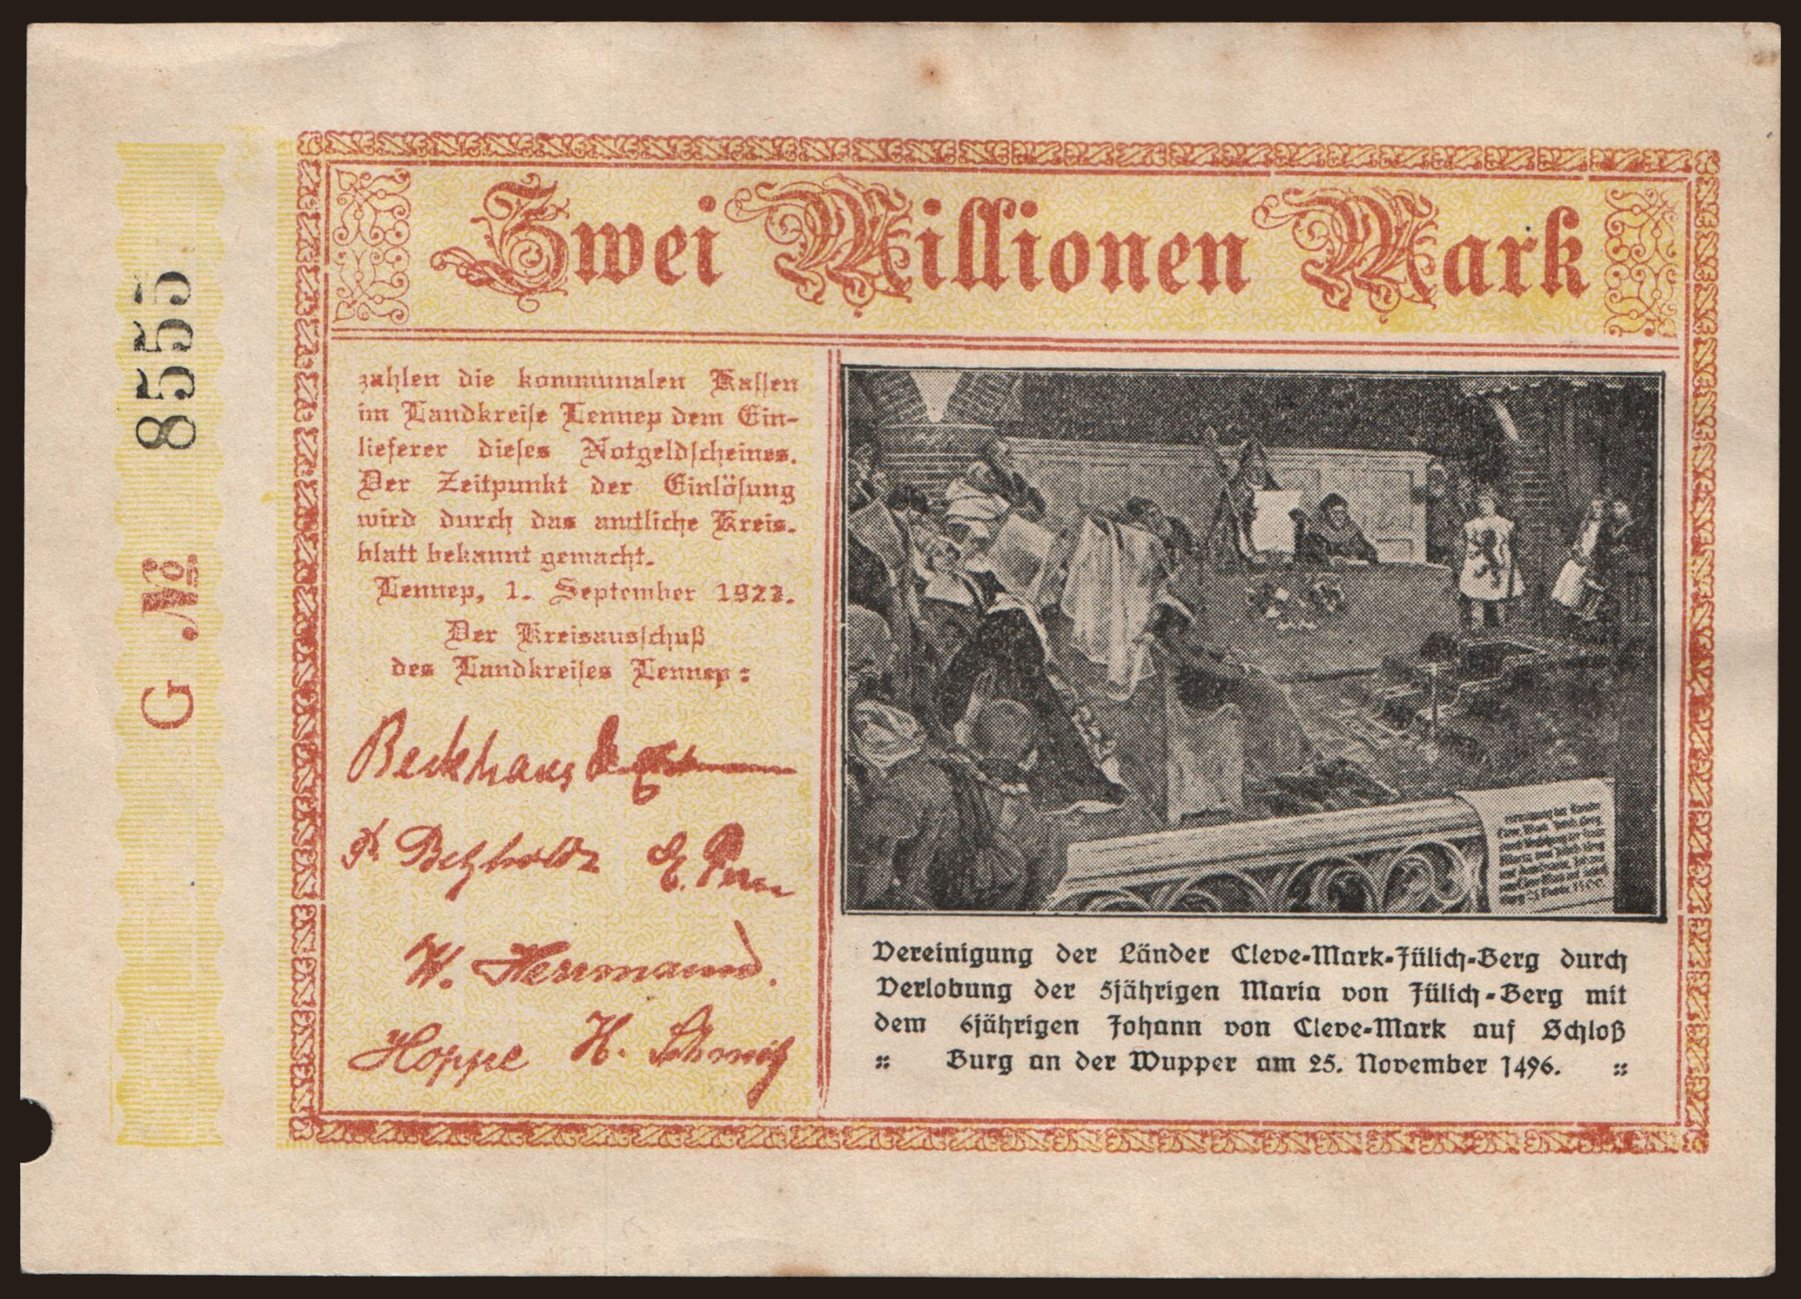 Zwei Millionen Mark
zahlen die kommunalen Kassen
im Landkreise Lennep dem Ein-
lieferer dieses Notgeldscheines.
Der Zeitpunkt der Einlösung
wird durch das amtliche Kreis-
blatt bekannt gemacht.
Lennep, 1. September 1923.
Der Kreisausschuß
des Landkreises Lennep:
Beckhaus
W. Herrmann.
Hoppe H. Schmitz
G .№ 8555
Vereinigung der Länder Cleve-Mark-Jülich-Berg durch
Verlobung der 5jährigen Maria von Jülich-Berg mit
dem 6jährigen Johann von Cleve-Mark auf Schloß
Burg an der Wupper am 25. November 1496.